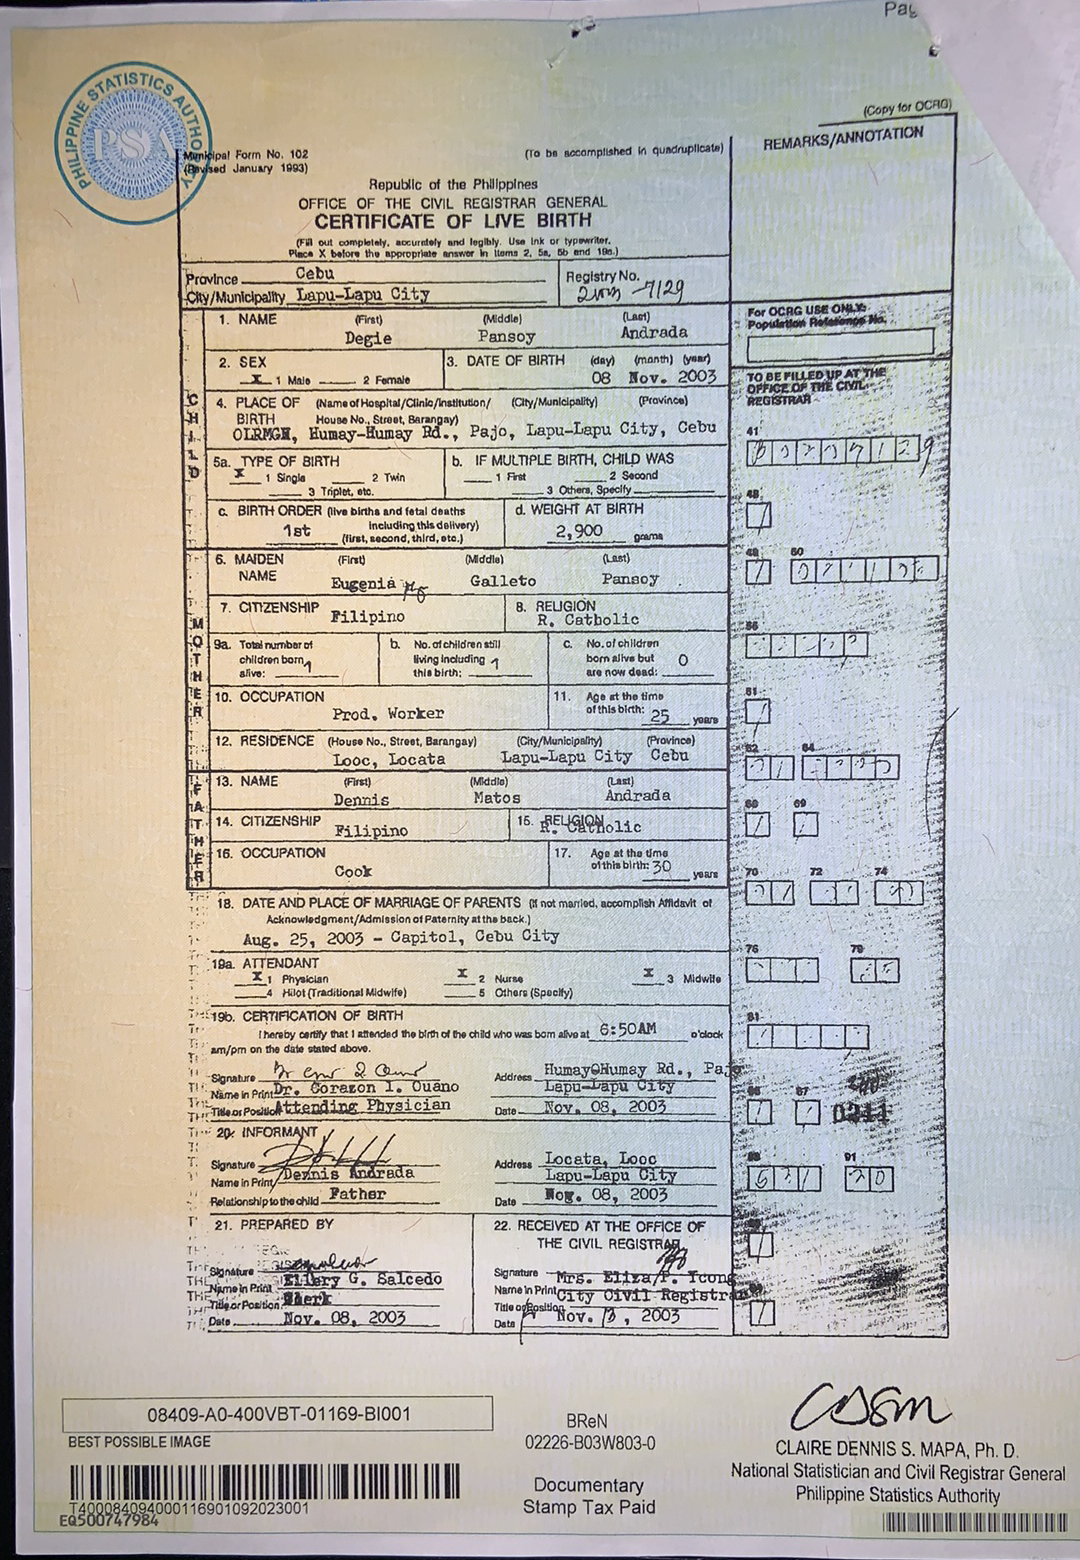 Pag
PHILIPPINE STATISTICS AUTHORITY
PSA
(Copy for OCRG)
Municipal Form No. 102
(To be accomplished in quadruplicate)
REMARKS/ANNOTATION
(Revised January 1993)
Republic of the Philippines
OFFICE OF THE CIVIL REGISTRAR GENERAL
CERTIFICATE OF LIVE BIRTH
(Fill out completely, accurately and legibly. Use ink or typewriter.
Place X before the appropriate answer in Items 2, 5a, 5b and 19a.)
Province Cebu
Registry No.
City/Municipality Lapu-Lapu City
-7129
For OCRG USE ONLY:
Population Reference No.
CHILD
1. NAME (First) (Middle) (Last)
Degie Pansoy Andrada
2. SEX
X 1 Male 2 Female
3. DATE OF BIRTH (day) (month) (year)
08 Nov. 2003
TO BE FILLED UP AT THE
OFFICE OF THE CIVIL
REGISTRAR
4. PLACE OF BIRTH (Name of Hospital/Clinic/Institution/ (City/Municipality) (Province)
House No., Street, Barangay)
OLRMGH, Humay-Humay Rd., Pajo, Lapu-Lapu City, Cebu
41
5a. TYPE OF BIRTH
X 1 Single 2 Twin
3 Triplet, etc.
b. IF MULTIPLE BIRTH, CHILD WAS
1 First 2 Second
3 Others, Specify
c. BIRTH ORDER (live births and fetal deaths
including this delivery)
1st
(first, second, third, etc.)
d. WEIGHT AT BIRTH
2,900 grams
MOTHER
6. MAIDEN NAME (First) (Middle) (Last)
Eugenia Galleto Pansoy
7. CITIZENSHIP
Filipino
8. RELIGION
R. Catholic
9a. Total number of
children born
alive: 1
b. No. of children still
living including
this birth: 1
c. No. of children
born alive but
are now dead: 0
10. OCCUPATION
Prod. Worker
11. Age at the time
of this birth: 25 years
61
12. RESIDENCE (House No., Street, Barangay) (City/Municipality) (Province)
Looc, Locata Lapu-Lapu City Cebu
62 64
FATHER
13. NAME (First) (Middle) (Last)
Dennis Matos Andrada
14. CITIZENSHIP Filipino
15. RELIGION
R. Catholic
68 69
16. OCCUPATION
Cook
17. Age at the time
of this birth: 30 years
70 72 74
18. DATE AND PLACE OF MARRIAGE OF PARENTS (If not married, accomplish Affidavit of
Acknowledgment/Admission of Paternity at the back.)
Aug. 25, 2003 - Capitol, Cebu City
19a. ATTENDANT
X 1 Physician X 2 Nurse X 3 Midwife
4 Hilot (Traditional Midwife) 5 Others (Specify)
76 79
19b. CERTIFICATION OF BIRTH
I hereby certify that I attended the birth of the child who was born alive at 6:50AM o'clock
am/pm on the date stated above.
81
Signature
Name in Print Dr. Corazon I. Ouano
Title or Position Attending Physician
Address Humay-Humay Rd., Pajo
Lapu-Lapu City
Date Nov. 08, 2003
87
0211
20. INFORMANT
Signature
Name in Print Dennis Andrada
Relationship to the child Father
Address Locata, Looc
Lapu-Lapu City
Date Nov. 08, 2003
91
21. PREPARED BY
Signature
Name in Print Ellery G. Salcedo
Title or Position Clerk
Date Nov. 08, 2003
22. RECEIVED AT THE OFFICE OF
THE CIVIL REGISTRAR
Signature
Name in Print Mrs. Eliza P. Ycong
Title or Position City Civil Registrar
Date Nov. 13, 2003
08409-A0-400VBT-01169-BI001
BEST POSSIBLE IMAGE
T400084094000116901092023001
EQ500747984
BReN
02226-B03W803-0
Documentary
Stamp Tax Paid
CLAIRE DENNIS S. MAPA, Ph. D.
National Statistician and Civil Registrar General
Philippine Statistics Authority